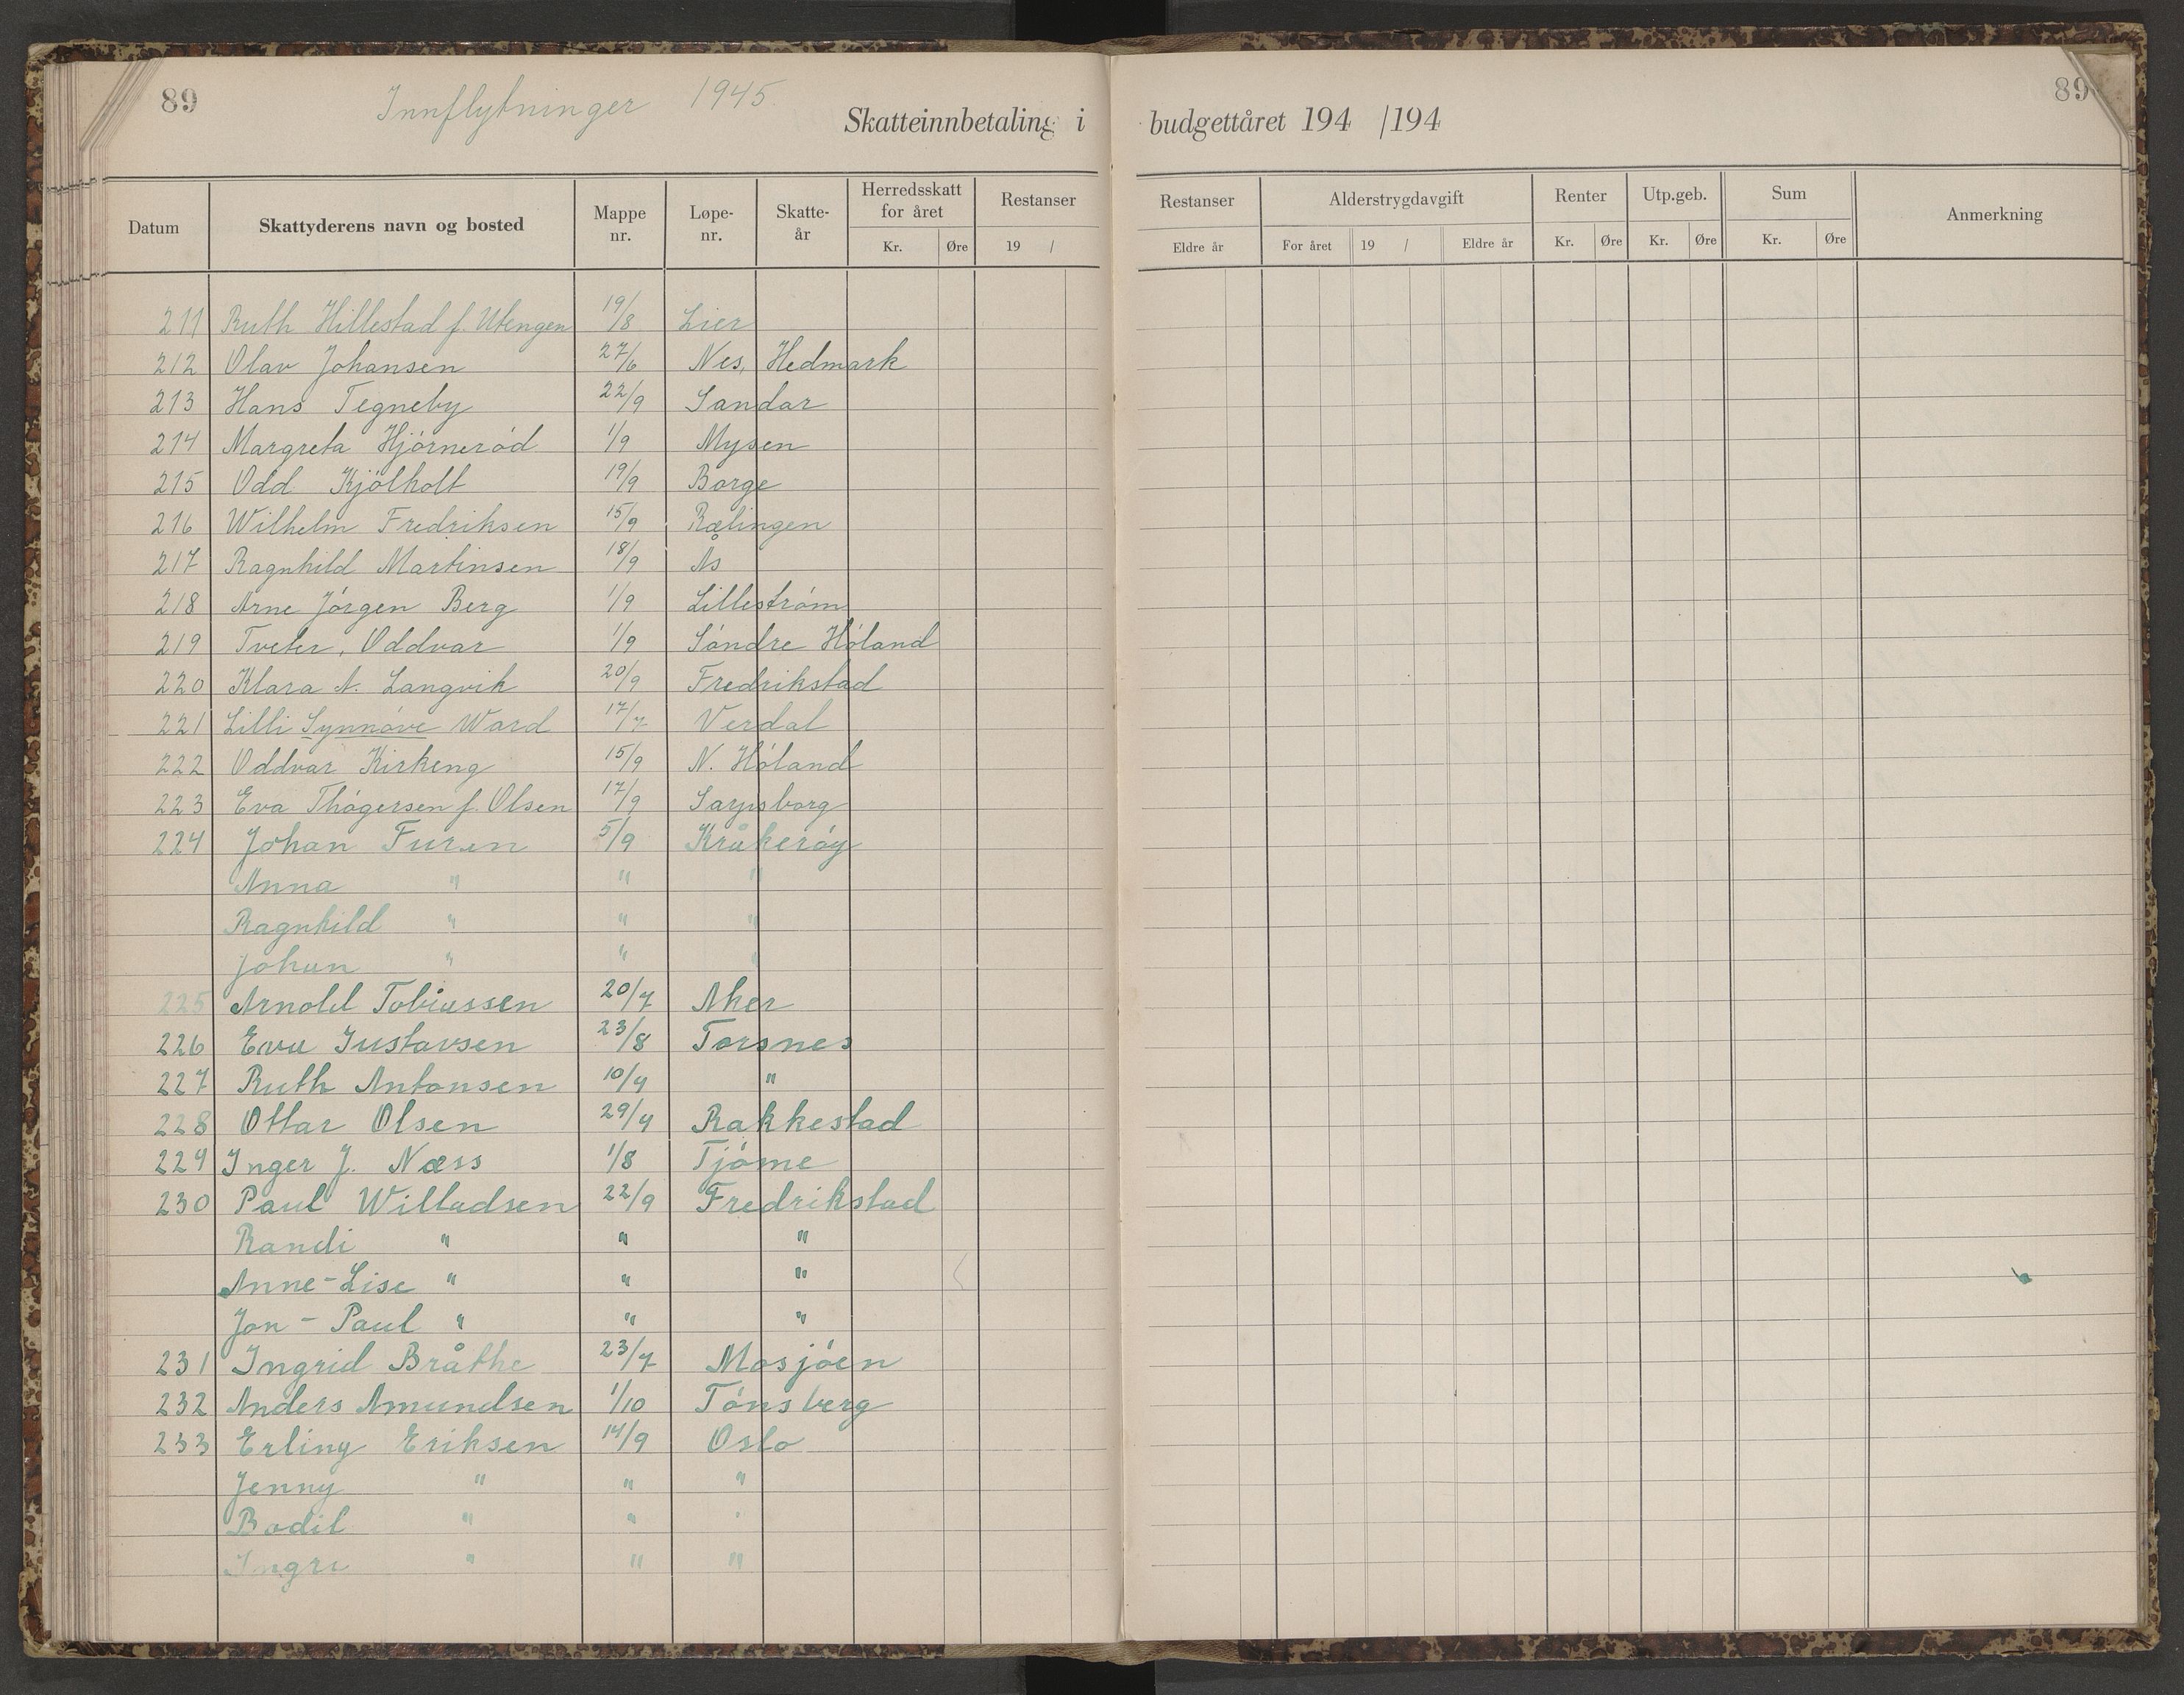 89
Innflytninger 1945
89
Skatteinnbetaling i budgettåret 194 /194
Datum Skattyderens navn og bosted Mappe nr. Løpe-nr. Skatte-år Herredsskatt for året Kr. Øre Restanser 19 / Restanser Eldre år Alderstrygdavgift For året 19 / Eldre år Renter Kr. Øre Utp.geb. Kr. Øre Sum Kr. Øre Anmerkning
211 Ruth Hillestad f. Utengen 19/8 Lier
212 Olav Johansen 27/6 Nes, Hedmark
213 Hans Tegneby 22/9 Sandar
214 Margreta Hjørnerød 1/9 Mysen
215 Odd Kjølholt 19/9 Borge
216 Wilhelm Fredriksen 15/9 Rælingen
217 Ragnhild Martinsen 18/9 Ås
218 Arne Jørgen Berg 1/9 Lillestrøm
219 Tveter, Oddvar 1/9 Søndre Høland
220 Klara A. Langvik 20/9 Fredrikstad
221 Lilli Synnøve Ward 17/7 Verdal
222 Oddvar Kirkeng 15/9 N. Høland
223 Eva Thøgersen f. Olsen 17/9 Sarpsborg
224 Johan Furen 5/9 Kråkerøy
Anna " " "
Ragnhild " " "
Johan " " "
225 Arnold Tobiassen 20/7 Aker
226 Eva Gustavsen 23/8 Torsnes
227 Ruth Antonsen 10/9 "
228 Ottar Olsen 29/9 Rakkestad
229 Inger J. Næss 1/8 Tjøme
230 Paul Willadsen 22/9 Fredrikstad
Randi " " "
Anne-Lise " " "
Jon - Paul " " "
231 Ingrid Bråthe 23/7 Mosjøen
232 Anders Amundsen 1/10 Tønsberg
233 Erling Eriksen 14/9 Oslo
Jenny " " "
Bodil " " "
Ingri " " "